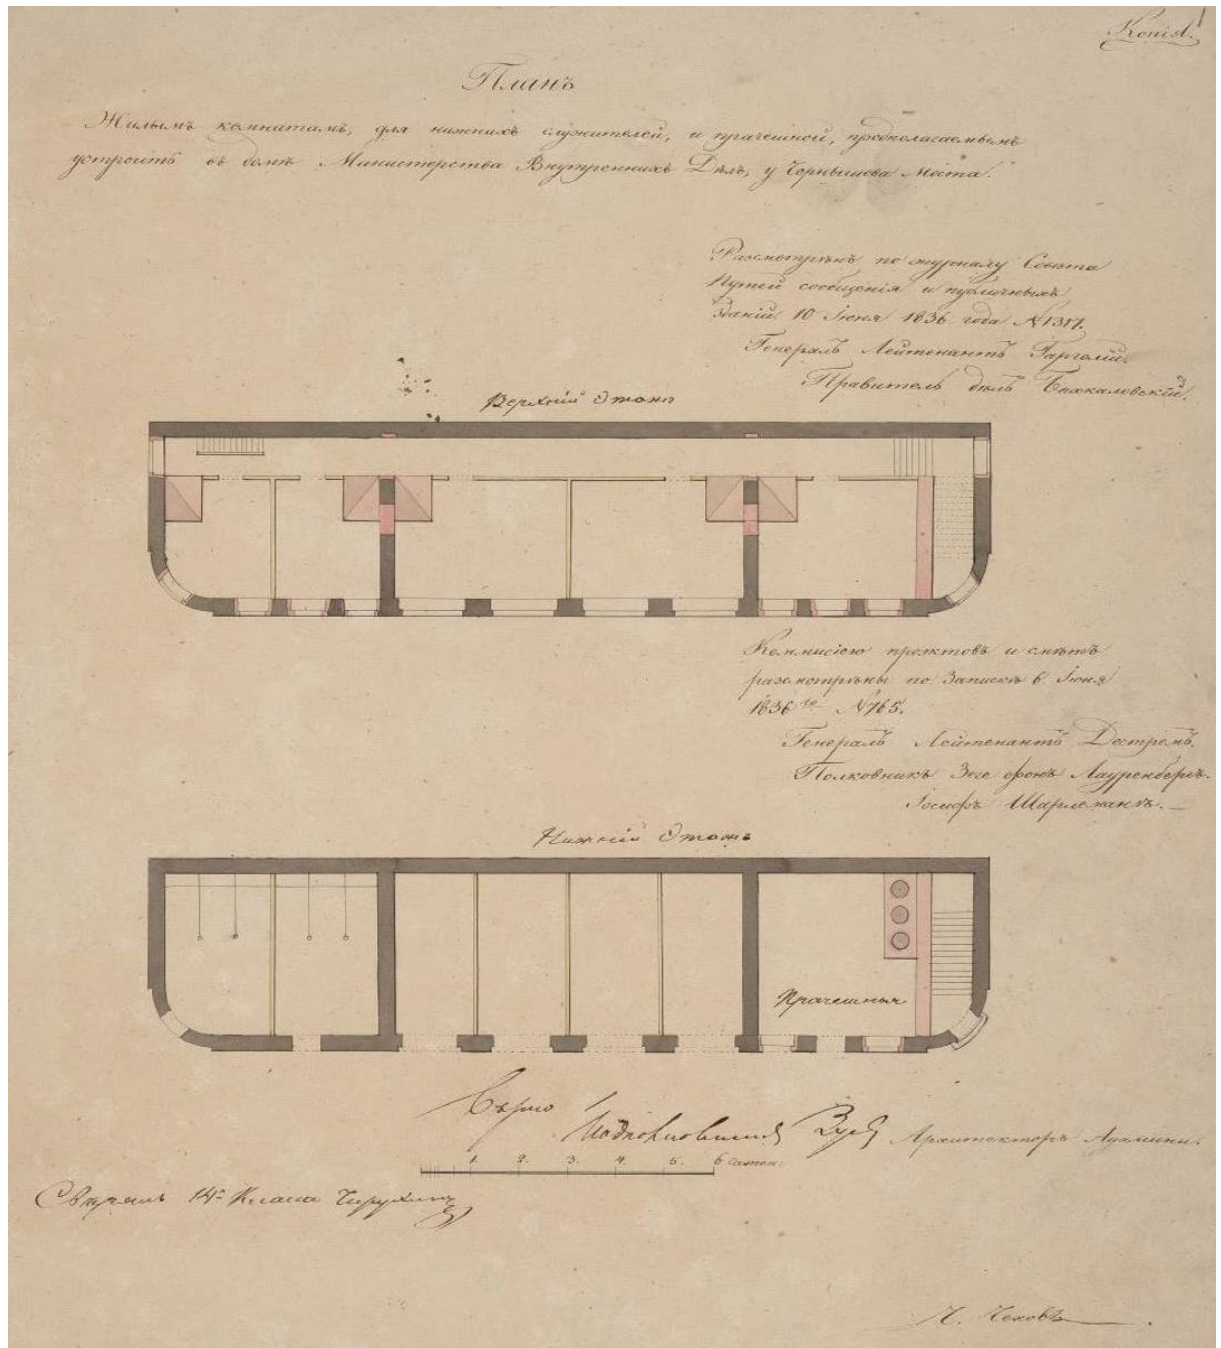 Копія.
Планъ
Жилымъ комнатамъ, для нижнихъ служителей, и прачешной, предполагаемымъ
устроить въ домѣ Министерства Внутреннихъ Дѣлъ, у Чернышева Моста.
Разсмотрѣнъ по журналу Совѣта
Путей сообщенія и публичныхъ
зданій 10 Іюня 1836 года №
Генералъ Лейтенантъ Гарголій.
Правитель дѣлъ
Верхній Этажъ
Коммисіею проэктовъ и смѣтъ
разсмотрѣны по Запискѣ 6 Іюня
1836 го №765.
Генералъ Лейтенантъ Дестремъ.
Полковникъ Зеге фонъ Лауренбергъ.
Іосифъ Шарлемань.
Нижній Этажъ
Прачешныя
Вѣрно Подполковникъ
Архитекторъ
1. 2. 3. 4. 5. 6 сажен:
14 Класса
Чеховъ